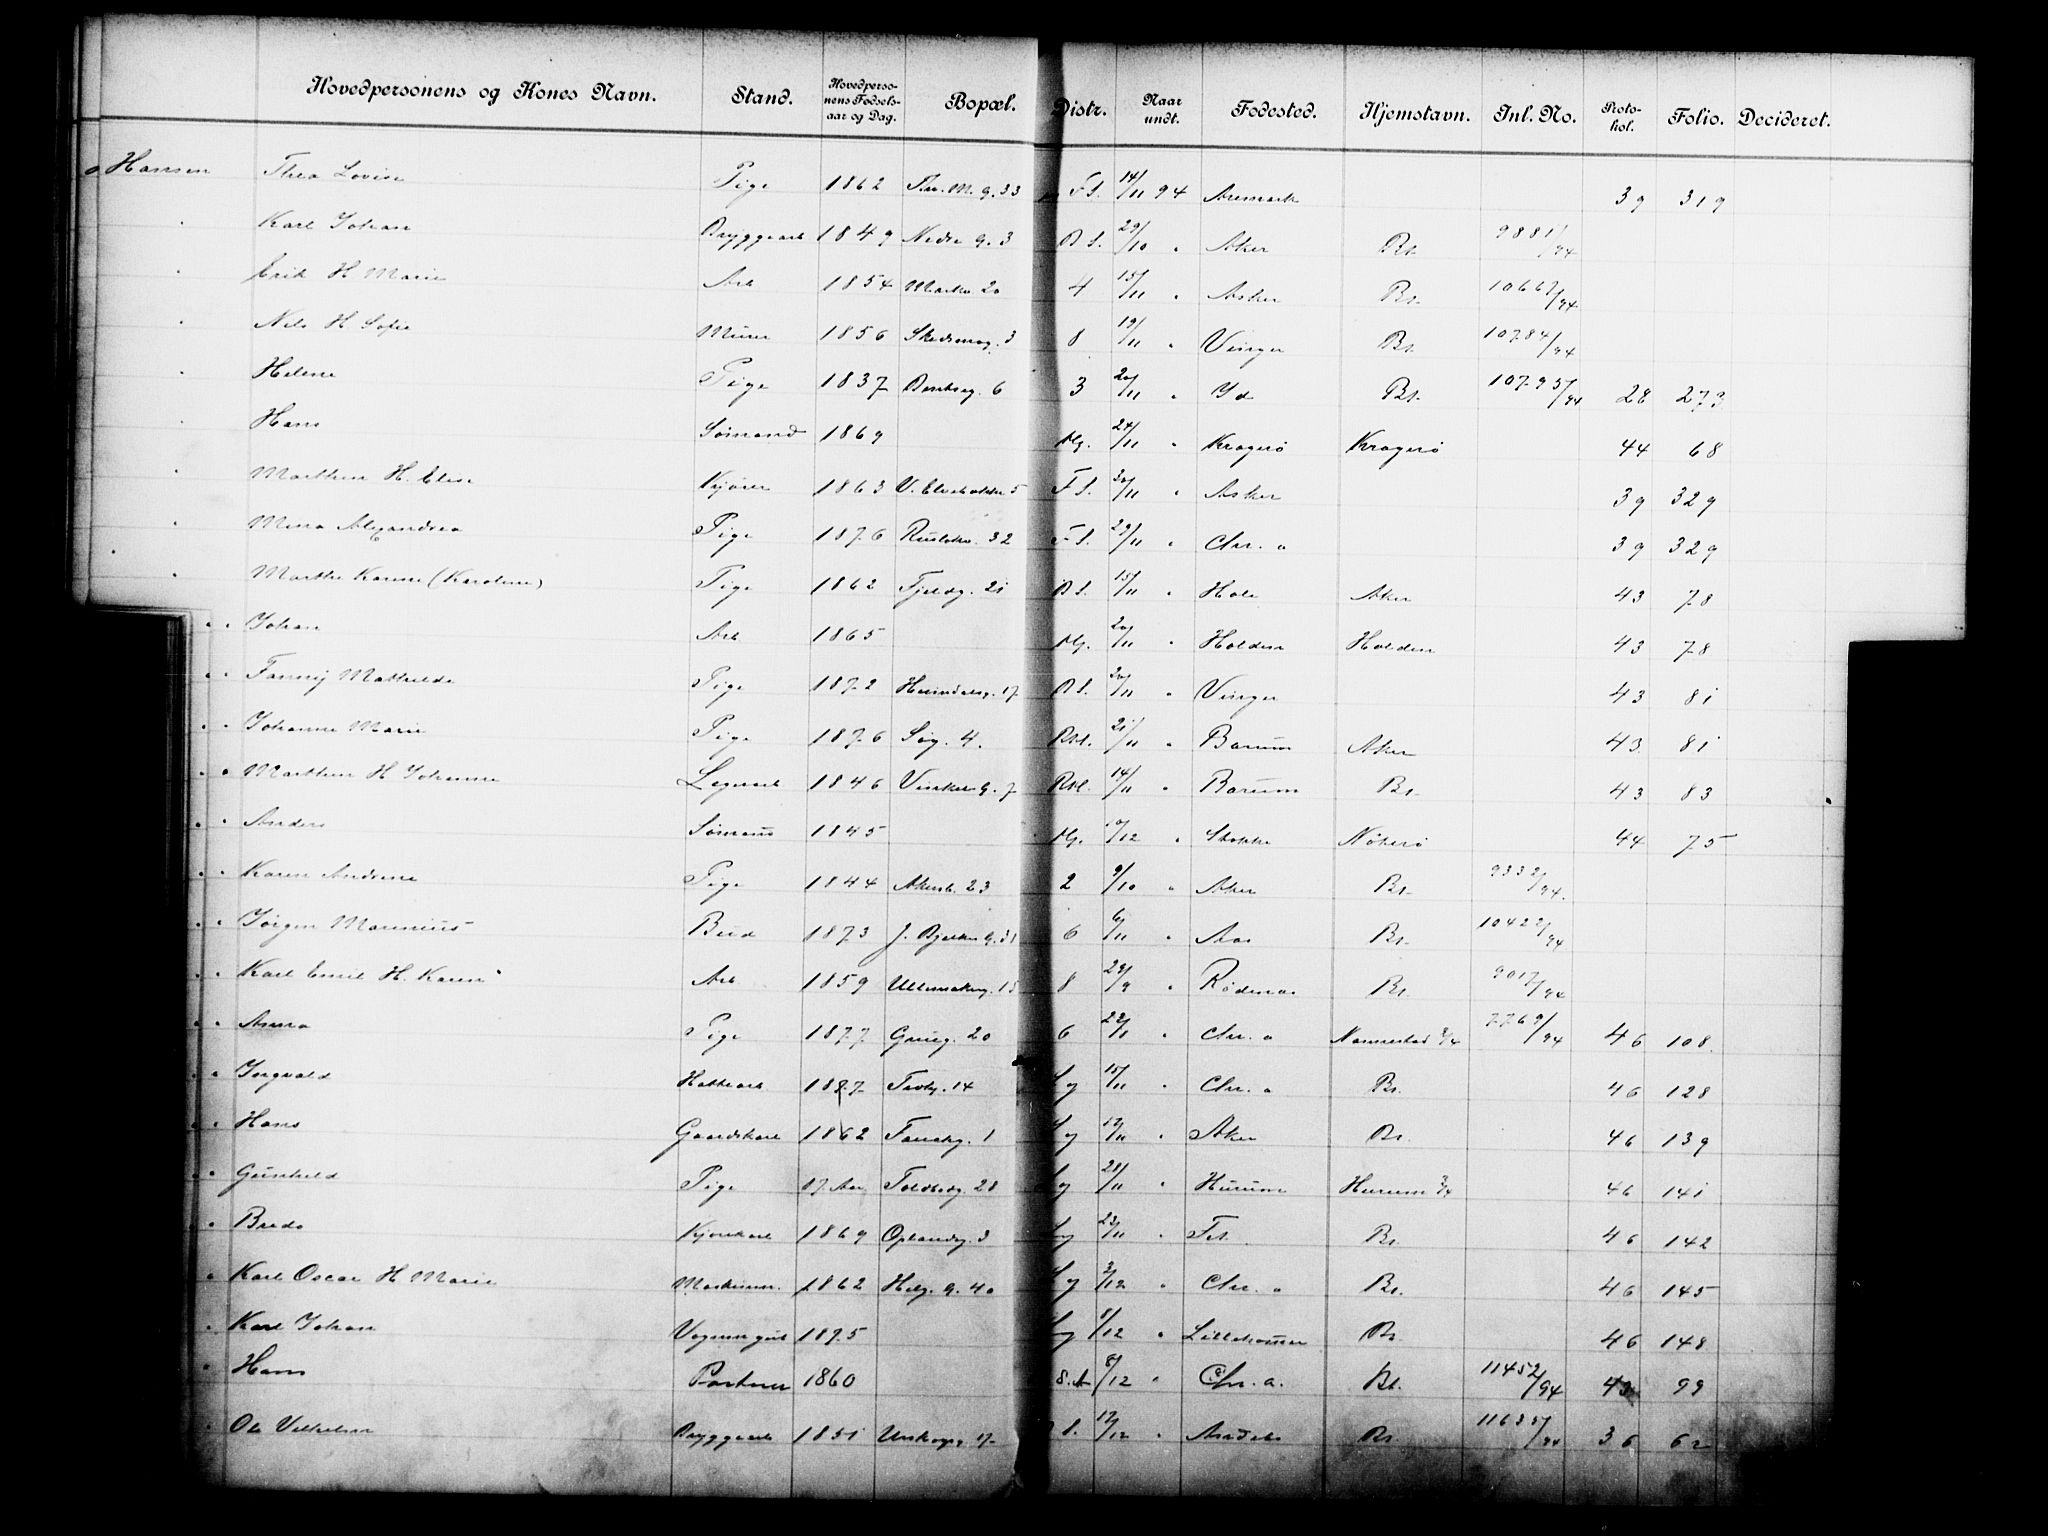 Hovedpersonens og Kones Navn. Stand. Hovedpersonens Fødselsaar og Dag. Bopæl. Distr. Naar undt. Fødested. Hjemstavn. Inl. No. Protokol. Folio. Decideret.
Hansen Thea Lovise Pige 1862 M. g. 33 F S. 14/11 94 Aremark 39 319
" Karl Johan Bryggearb 1849 Nedre g. 3 B S. 29/10 " Aker Br. 9881/94
" Erik H Marie Arb 1854 Markv 20 4 15/11 " Asker Br. 10667/94
" Nils H Sofie Murer 1856 Skedsmog. 3 8 19/11 " Vinger Br. 10784/94
" Helene Pige 1837 Bentseg. 6 3 20/11 " Id Br. 10795/94 28 273
" Hans Sømand 1869 Mg. 24/11 " Kragerø Kragerø 44 68
" Marthin H. Elise Kjører 1863 V. Elvebakke 5 F S. 30/11 " Asker 39 329
" Mina Alexandra Pige 1876 Ruselkv. 32 F S. 29/11 " Chr. a 39 329
" Marthe Karine (Karoline) Pige 1862 Fjeldg. 21 B S. 15/11 " Hole Aker 43 78
" Johan Arb 1865 Mg. 20/11 " Holden Holden 43 78
" Fanny Mathilde Pige 1872 Heimdalsg. 17 B S. 20/11 " Vinger 43 81
" Johanne Marie Pige 1876 Søg. 4. 21/11 " Bærum Aker 43 81
" Marthin H Johanne Lagerarb 1846 Vinkel g. 7 14/11 " Bærum Br. 43 83
" Anders Sømand 1845 Mg. /12 " Stokke Nøterø 44 75
" Karen Andrine Pige 1844 Akersb. 23 2 9/10 " Aker Br. 9332/94.
" Jørgen Marinius Bud 1873 J. Bjelkes g. 31 6 6/11 " Aas Br. 10422/94
" Karl Emil H. Karen Arb 1859 Ullensakerg. 15 8 29/9 " Rødenæs Br. 9017/94
" Anna Pige 1877 Grueg. 20 6 22/ " Chr. a Nannestad 3/4 7769/94 46 108.
" Ingvald Hattearb 1877 Tevtg. 14 Sg 15/11 " Chr. a Br. 46 128
" Hans Gaardskarl 1862 1 Sg 17/11 " Aker Br. 46 139
" Gunhild Pige 17. Aar Toldbodg. 28 Sg 28/11 " Hurum Hurum 3/4 46 141
" Bredo Kjørekarl 1869 Oplandg. 3 Sg 23/11 " Fet. Br. 46 142
" Karl Oscar H Marie Maskinm. 1862 Helg. g. 40 Sg 3/12 " Chr. a Br. 46 145
" Karl Johan Vognmgut 1875 Sg 8/12 " Lillehammer Br. 46 148
" Hans Portner 1860 S. A 8/12 " Chr. a. Br. 11452/94 43 99
" Ole Vilhelm Bryggearb 1851 Urskogsg. 17 S. 17/12 " Br. 11635/94 36 62